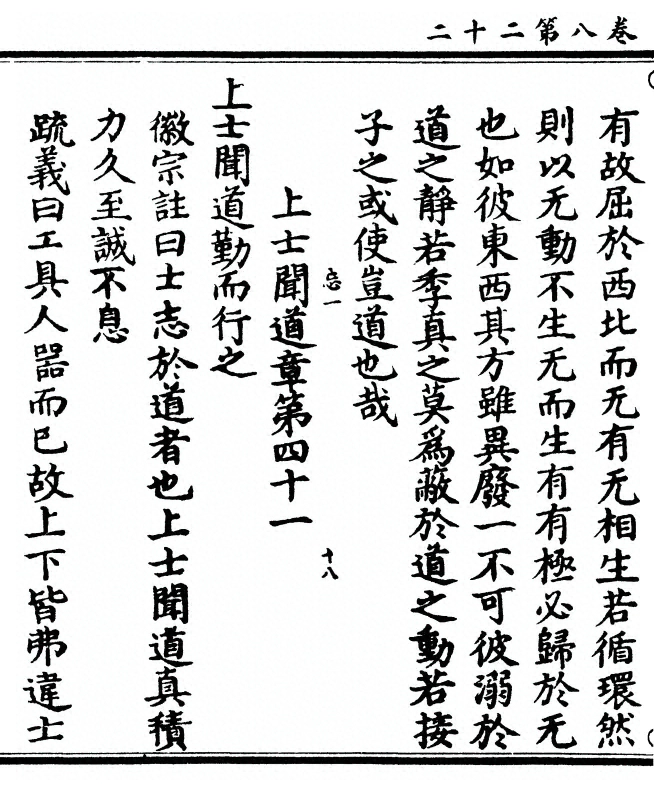 卷八第二十二
有故屈於西北而无有无相生若循環然
則以无動不生无而生有有極必歸於无
也如彼東西其方雖異廢一不可彼溺於
道之靜若季真之莫爲蔽於道之動若接
子之或使豈道也哉
上士聞道章第四十一
忘一
十八
上士聞道勤而行之
徽宗註曰士志於道者也上士聞道真積
力久至誠不息
疏義曰工具人器而已故上下皆弗違士